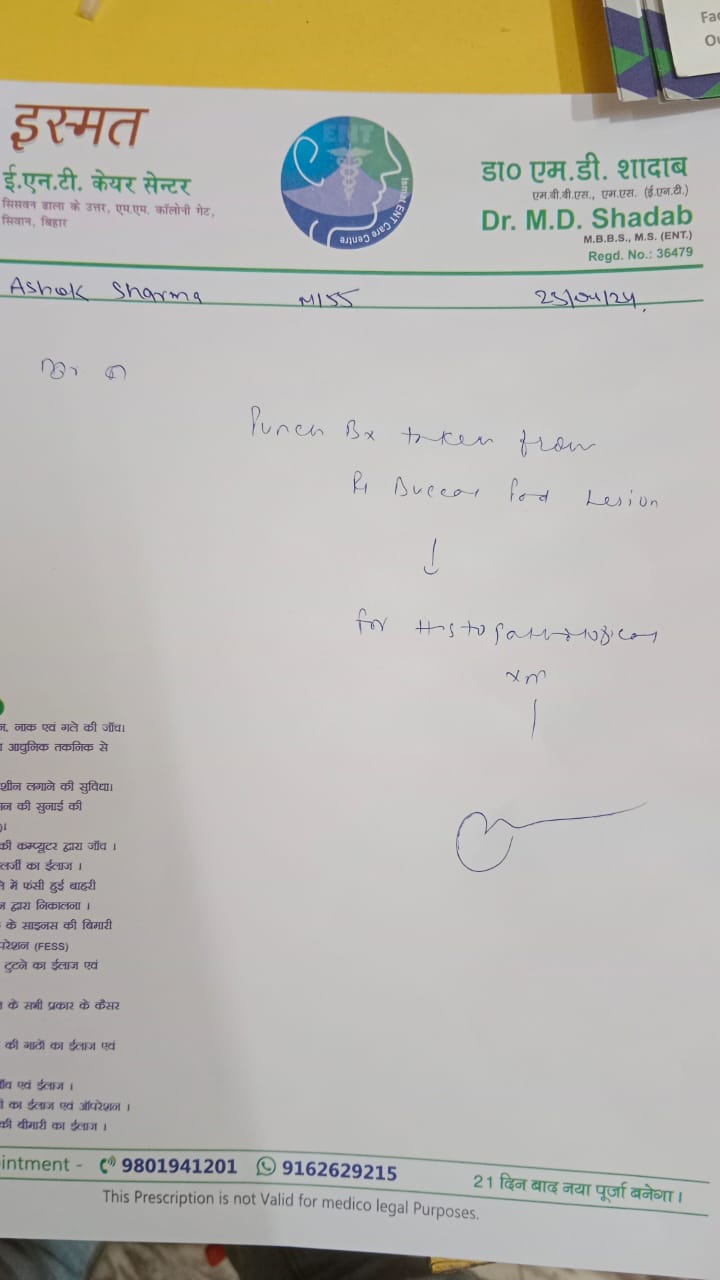 Fac
Ou
इस्मत
ई.एन.टी. केयर सेन्टर
सिसवन ढाला के उत्तर, एम.एम. कॉलोनी गेट,
सिवान, बिहार
ENT
Ismat ENT Care Centre
डा० एम.डी. शादाब
एम.बी.बी.एस., एम.एस. (ई.एन.टी.)
Dr. M.D. Shadab
M.B.B.S., M.S. (ENT.)
Regd. No.: 36479
Ashok Sharma M/55 23/04/24
Punch Bx taken from
Rt Buccal Lesion
for Histopathological
न, नाक एवं गले की जाँच।
आधुनिक तकनिक से
शीन लगाने की सुविधा।
मन की सुनाई की
की कम्प्यूटर द्वारा जाँच ।
लर्जी का ईलाज ।
में फंसी हुई बाहरी
द्वारा निकालना ।
के साइनस की बिमारी
परेशन (FESS)
टुटने का ईलाज एवं
के सभी प्रकार के कैंसर
की गाठों का ईलाज एवं
एवं ईलाज ।
का ईलाज एवं ऑपरेशन ।
की बीमारी का ईलाज ।
intment - 9801941201 9162629215
21 दिन बाद नया पूर्जा बनेगा।
This Prescription is not Valid for medico legal Purposes.